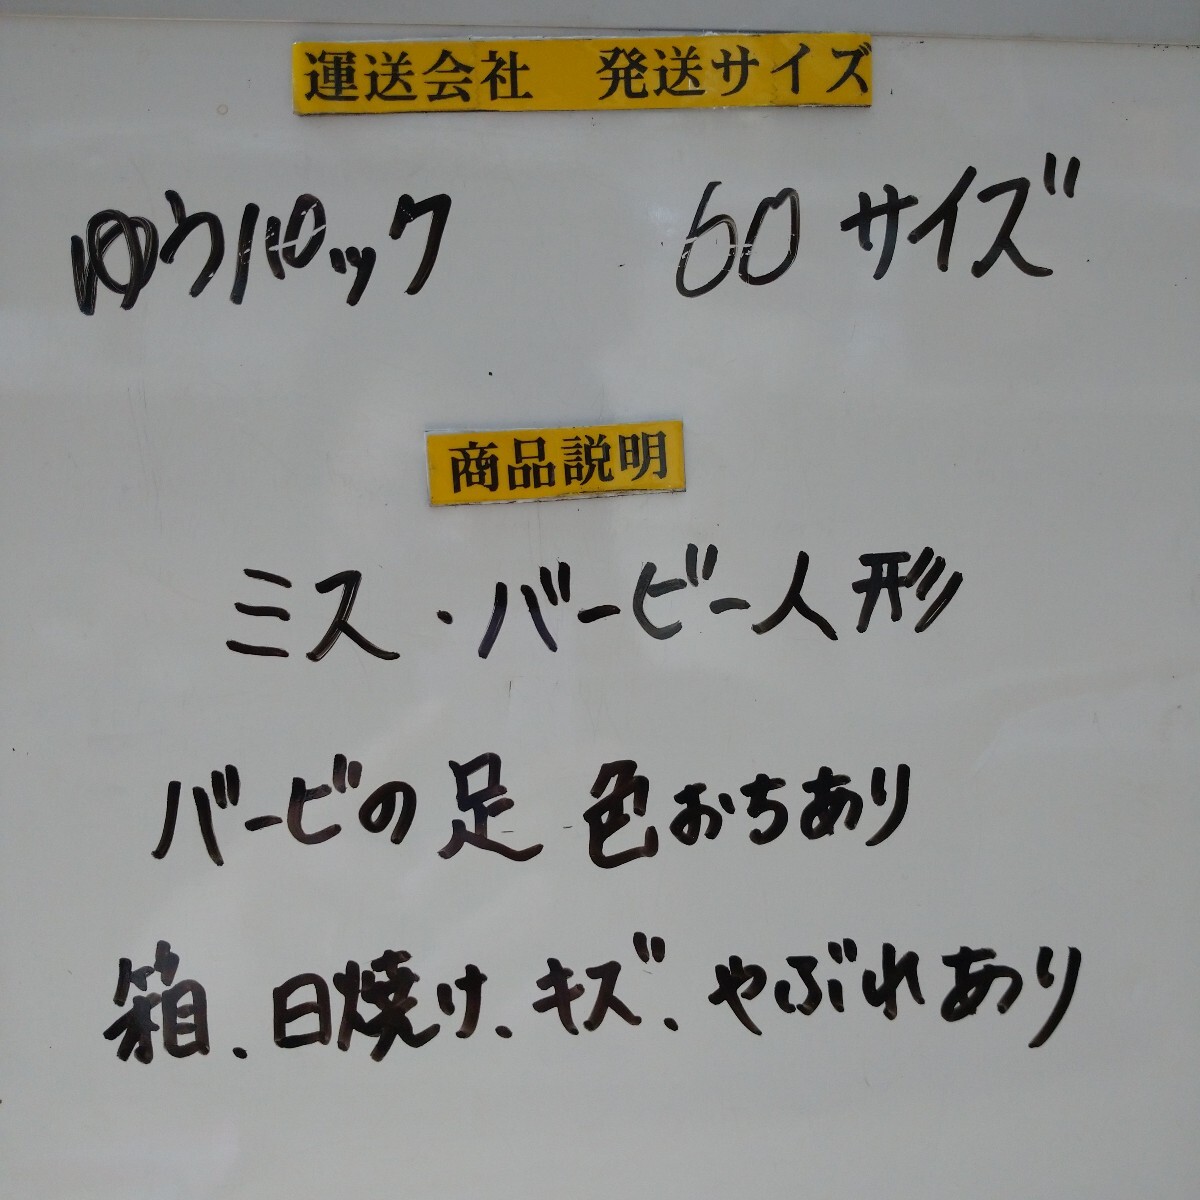 運送会社 発送サイズ
ゆうパック 60サイズ
商品説明
ミス・バービー人形
バービの足 色おちあり
箱、日焼け、キズ、やぶれあり